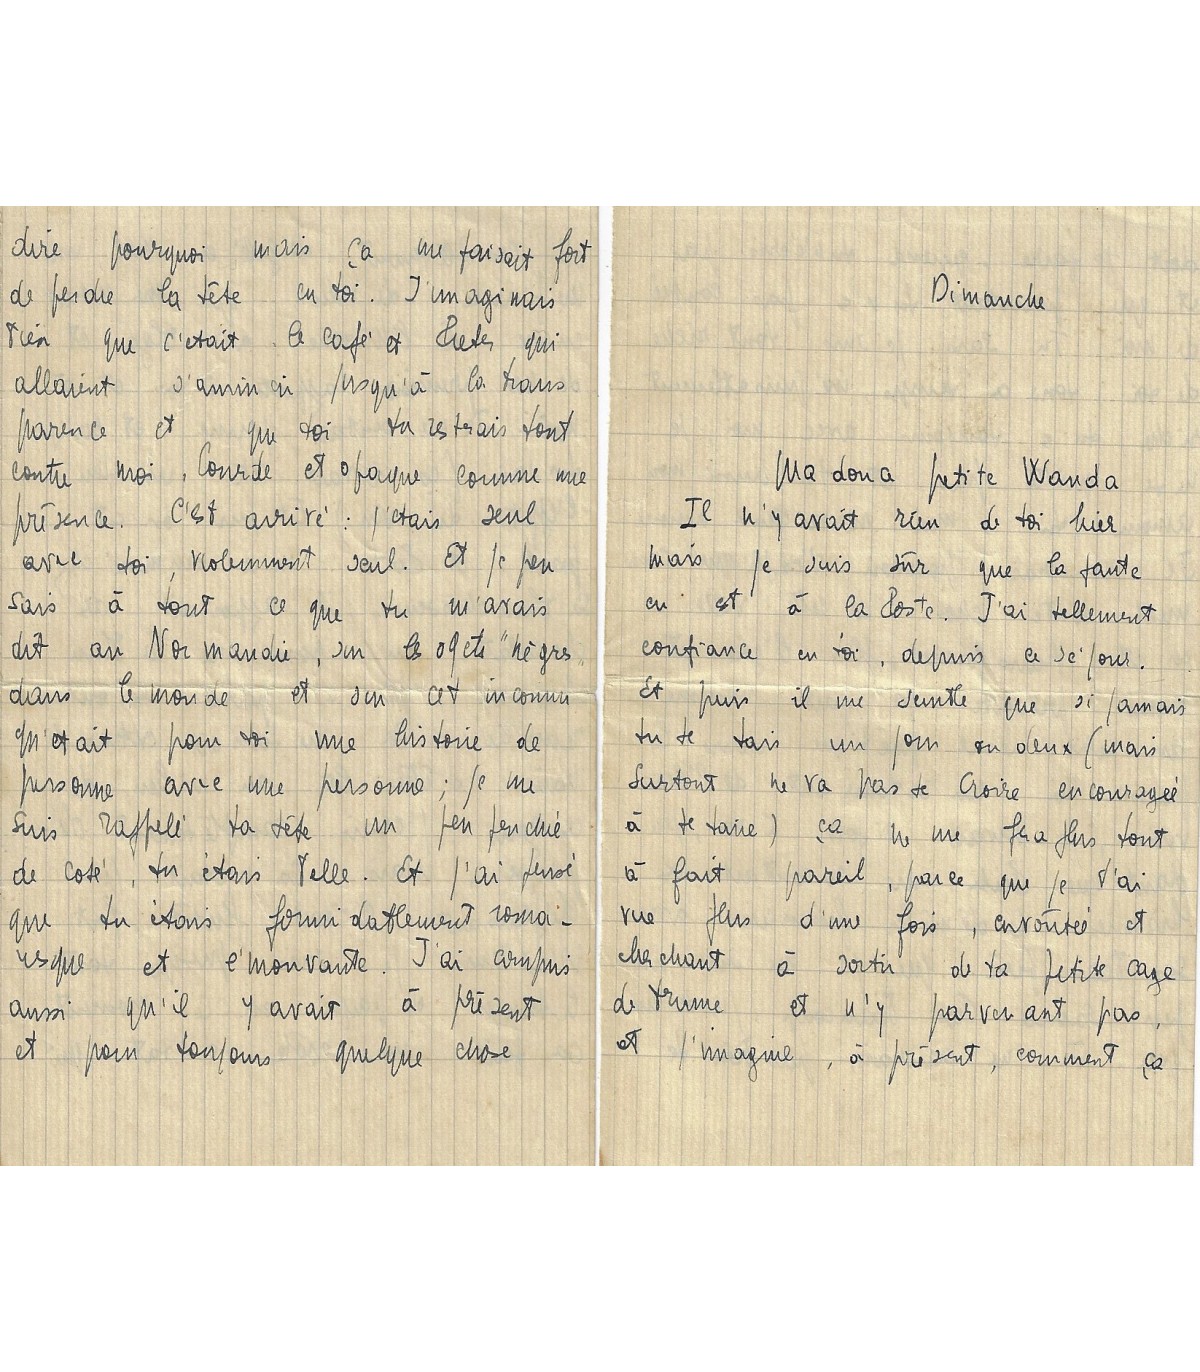 Dimanche
Ma dona petite Wanda
Il n'y avait rien de toi hier
mais je suis sûr que la faute
en est à la Poste. J'ai tellement
confiance en toi, depuis ce séjour.
Et puis il me semble que si jamais
tu te tais un jour ou deux (mais
surtout ne va pas te croire encouragée
à te taire) ça ne me fera plus tout
à fait pareil, parce que je t'ai
vue plus d'une fois, envoûtée et
cherchant à sortir de ta petite cage
de brume et n'y parvenant pas,
et j'imagine, à présent, comment ça
dire pourquoi mais ça me faisait fort
de perdre la tête en toi. J'imaginais
bien que c'était le café et qui
allaient s'amincir jusqu'à la trans
parence et que toi tu resterais tout
contre moi, lourde et opaque comme une
présence. C'est arrivé : j'étais seul
avec toi, violemment seul. Et je pen
sais à tout ce que tu m'avais
dit au Normandie, sur les objets "nègres"
dans le monde et sur cet inconnu
qu'était pour toi une histoire de
personne avec une personne ; je me
suis rappelé ta tête un peu penchée
de coté, tu étais belle. Et j'ai pensé
que tu étais formidablement roma-
nesque et émouvante. J'ai compris
aussi qu'il y avait à présent
et pour toujours quelque chose